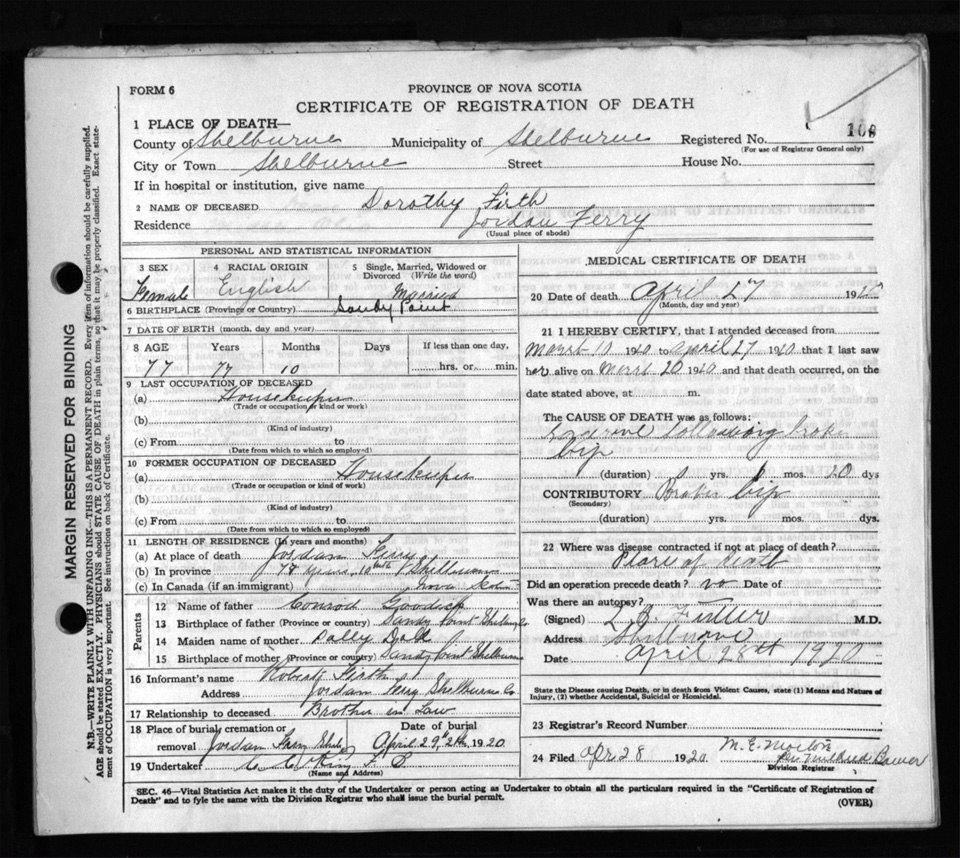 FORM 6
PROVINCE OF NOVA SCOTIA
CERTIFICATE OF REGISTRATION OF DEATH
1 PLACE OF DEATH—
County of Shelburne Municipality of Shelburne Registered No. 100
(For use of Registrar General only)
City or Town Shelburne Street House No.
If in hospital or institution, give name
2 NAME OF DECEASED Dorothy Firth
Residence Jordan Ferry
(Usual place of abode)
PERSONAL AND STATISTICAL INFORMATION
3 SEX Female
4 RACIAL ORIGIN English
5 Single, Married, Widowed or Divorced (Write the word) Married
6 BIRTHPLACE (Province or Country) Sandy Point
7 DATE OF BIRTH (month, day and year)
8 AGE Years Months Days If less than one day,
77 77 10 hrs. or min.
9 LAST OCCUPATION OF DECEASED
(a) Housekeeper
(Trade or occupation or kind of work)
(b)
(Kind of industry)
(c) From to
(Date from which to which so employed)
10 FORMER OCCUPATION OF DECEASED
(a) Housekeeper
(Trade or occupation or kind of work)
(b)
(Kind of industry)
(c) From to
(Date from which to which so employed)
11 LENGTH OF RESIDENCE (In years and months)
(a) At place of death Jordan Ferry
(b) In province 77 years 10 mth Shelburne
(c) In Canada (if an immigrant) Nova Scotia
Parents
12 Name of father Conrod
13 Birthplace of father (Province or country) Sandy Point Shelburne Co
14 Maiden name of mother Dolly
15 Birthplace of mother (Province or country) Sandy Point Shelburne
16 Informant's name Robert Firth
Address Jordan Ferry Shelburne Co
17 Relationship to deceased Brother in Law
18 Place of burial, cremation or removal Jordan Ferry
Date of burial April 29 1920
19 Undertaker King
(Name and Address)
MEDICAL CERTIFICATE OF DEATH
20 Date of death April 27 192
(Month, day and year)
21 I HEREBY CERTIFY, that I attended deceased from
March 10 1920 to April 27 1920 that I last saw
her alive on March 20 1920 and that death occurred, on the
date stated above, at m.
The CAUSE OF DEATH was as follows:
following broken
hip
(duration) yrs. 1 mos. 20 dys
CONTRIBUTORY Broken hip
(Secondary)
(duration) yrs. mos. dys.
22 Where was disease contracted if not at place of death?
Place of death
Did an operation precede death? no Date of
Was there an autopsy?
(Signed) Fuller M.D.
Address Shelburne
Date April 28th 1920
State the Disease causing Death, or in death from Violent Causes, state (1) Means and Nature of
Injury, (2) whether Accidental, Suicidal or Homicidal.
23 Registrar's Record Number
24 Filed Apr 28 1920 M. E. Morton
Bower
Division Registrar
SEC. 46—Vital Statistics Act makes it the duty of the Undertaker or person acting as Undertaker to obtain all the particulars required in the "Certificate of Registration of
Death" and to fyle the same with the Division Registrar who shall issue the burial permit.
(OVER)
MARGIN RESERVED FOR BINDING
N.B.—WRITE PLAINLY WITH UNFADING INK—THIS IS A PERMANENT RECORD. Every item of information should be carefully supplied.
AGE should be stated EXACTLY. PHYSICIANS should STATE CAUSE OF DEATH in plain terms, so that it may be properly classified. Exact statement of OCCUPATION is very important. See instructions on back of Certificate.